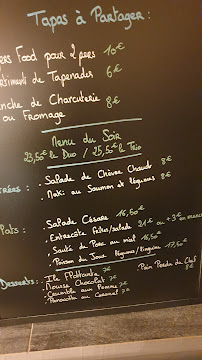 Tapas à Partager :
ers Food pour 2 pers 10€
rtiment de Tapenades 6€
nche de Charcuterie 8€
ou Fromage
Menu du Soir
23,50€ le Duo / 25,50€ le Trio
TRÉES: . Salade de Chèvre Chaud 8€
. Maki au Saumon et Légumes 8€
Plats: . Salade César 16,50€
. Entrecôte frites/salade 21€ ou +3€ en menu
. Sauté de Porc au miel 16,50€
. Poisson du Jour légumes/linguine 17,50€
Desserts: . Ile Flottante 7€
. Mousse Chocolat 7€ . Pain Perdu du Chef
. Crumble aux Pommes 7€ 8€
. Pannacotta au Caramel 7€